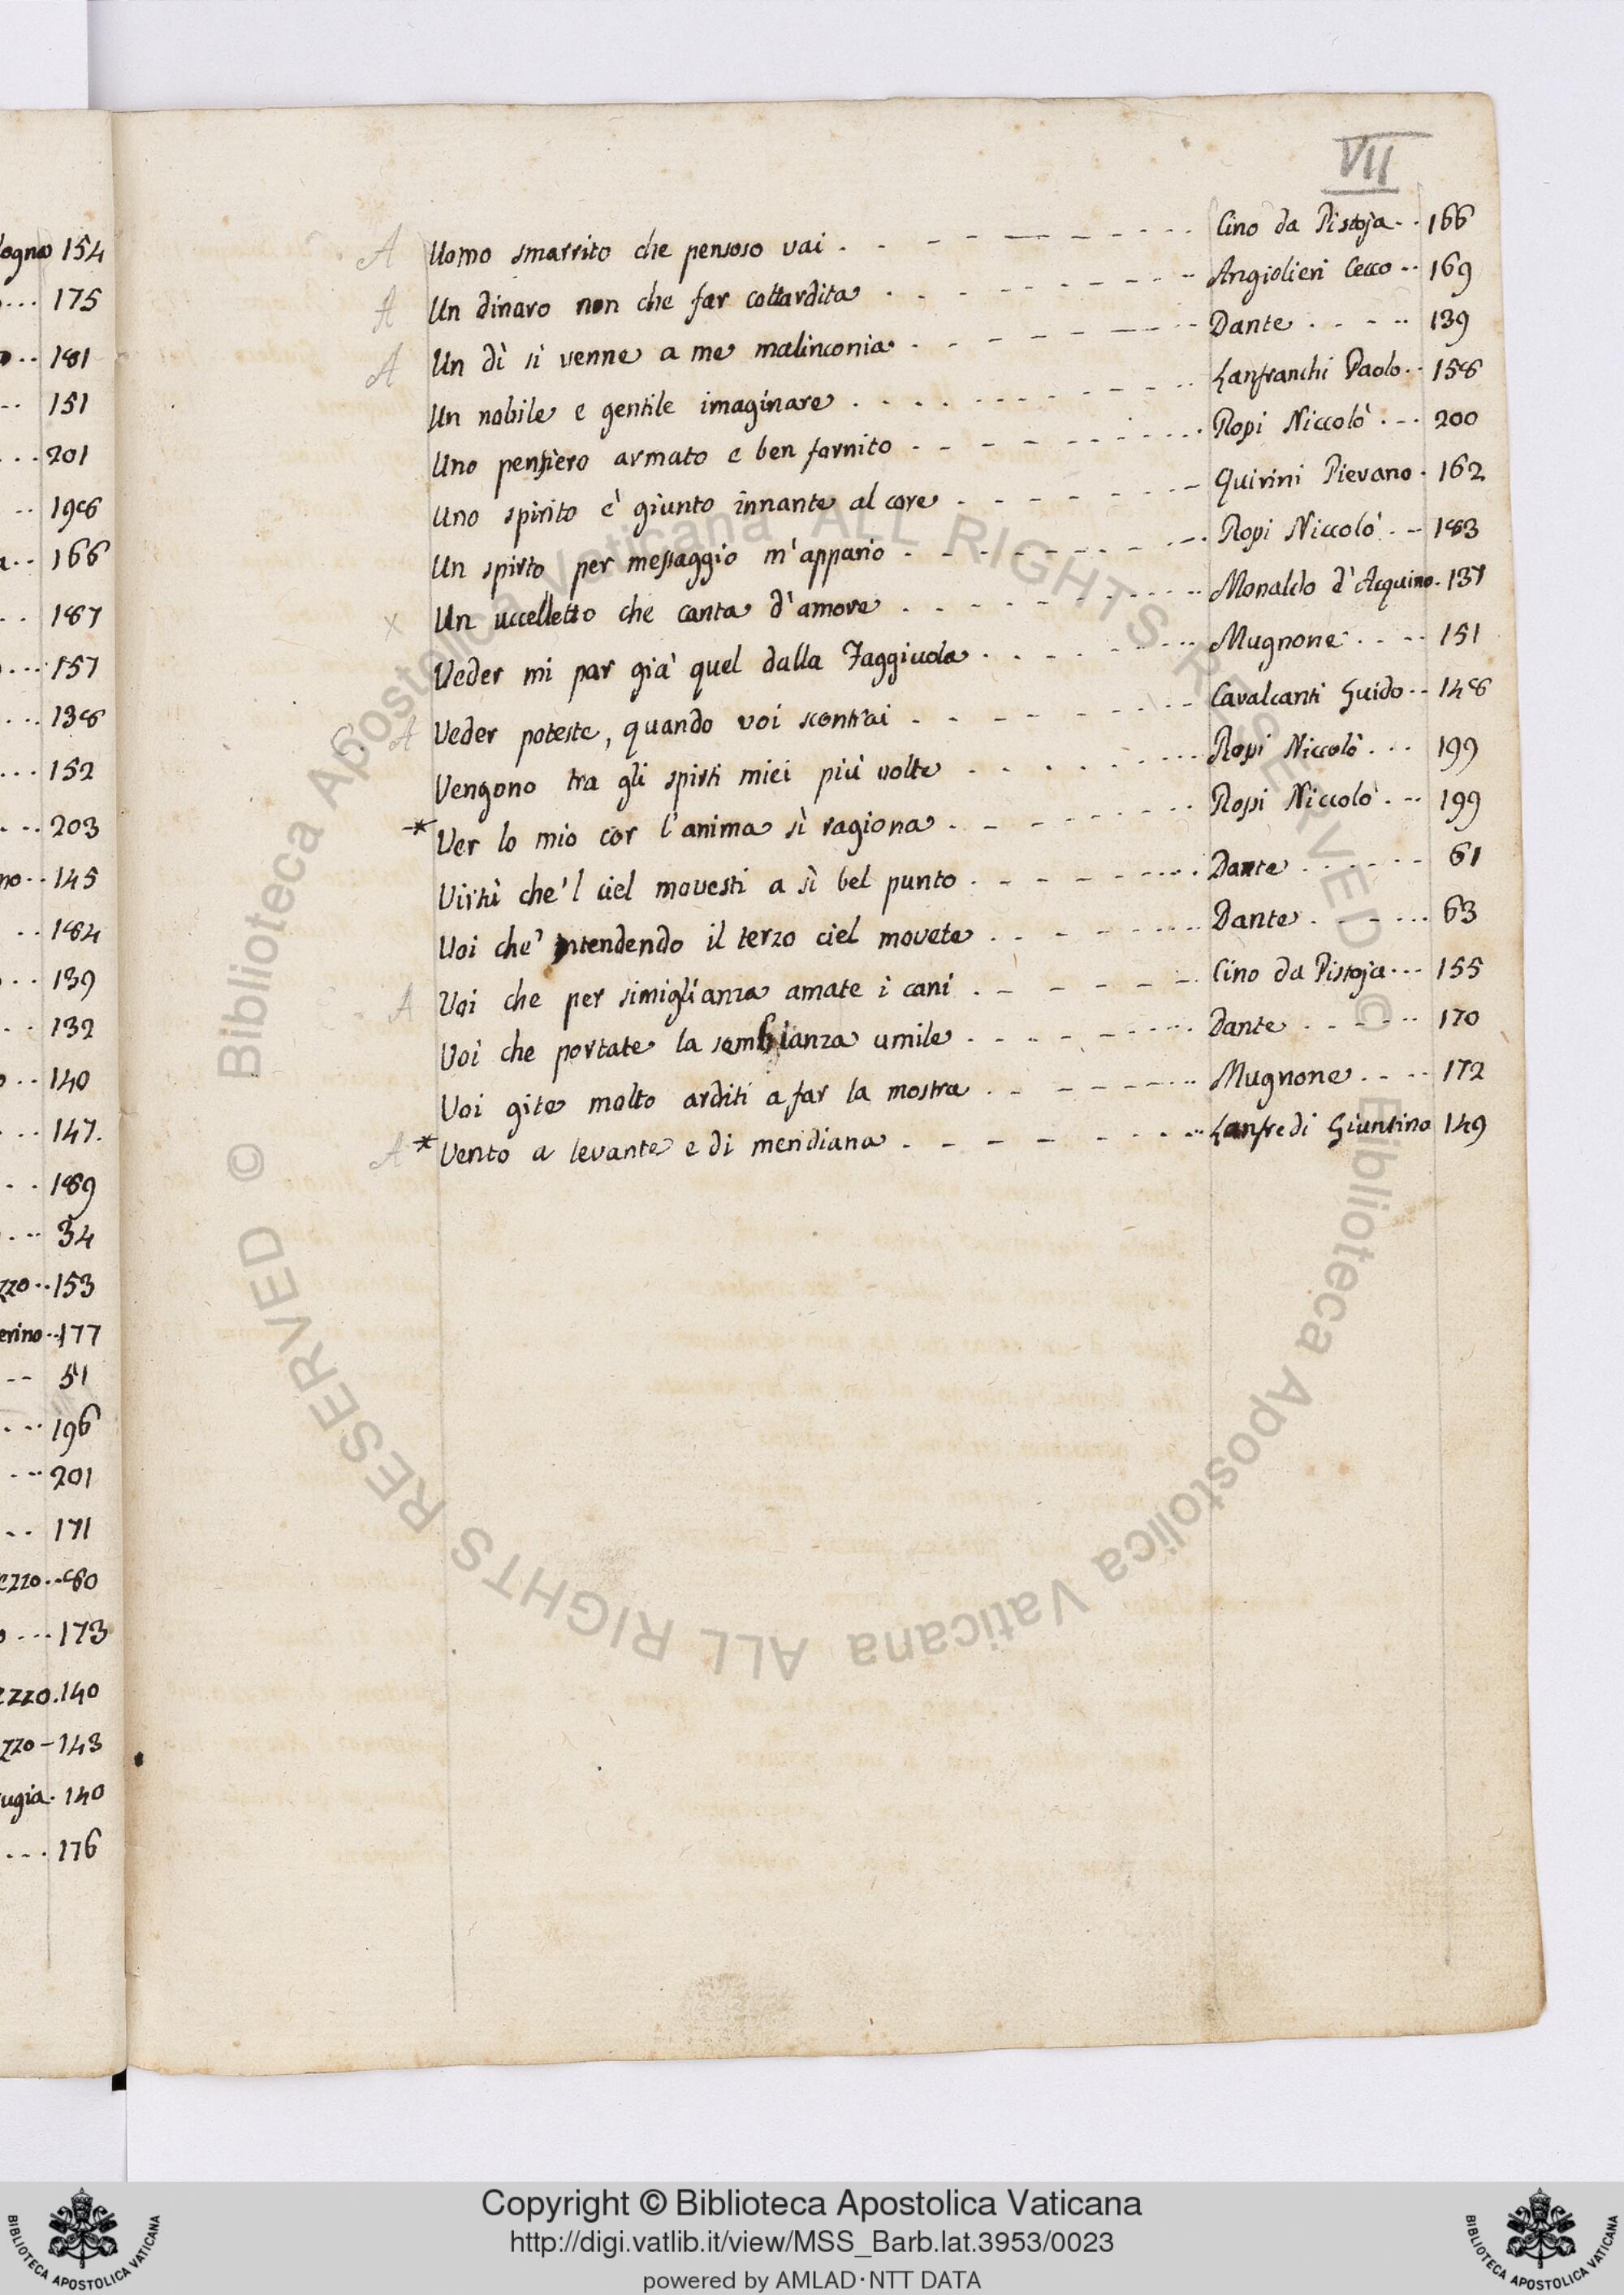 VII
logna 154
175
181
151
201
198
166
187
157
138
152
203
no 145
184
139
132
140
147.
189
34
zzo 153
erino 177
51
196
201
171
ezzo 80
173
ezzo. 140
zzo – 143
ugia. 140
176
A Uomo smarrito che pensoso vai Cino da Pistoja 166
A Un dinaro non che far cottardita Angiolieri Cecco 169
A Un dì sì venne a me malinconia Dante 139
Un nobile e gentile imaginare Lanfranchi Paolo 158
Uno pensiero armato e ben fornito Ropi Niccolò 200
Uno spirito è giunto innante al core Quirini Pievano 162
Un spirto per messaggio m'appario Ropi Niccolò 183
x Un uccelletto che canta d'amore Monaldo d'Acquino 137
Veder mi par già quel dalla Faggiuola Mugnone 151
A Veder poteste, quando voi scontrai Cavalcanti Guido 148
Vengono tra gli spirti miei più volte Ropi Niccolò 199
* Ver lo mio cor l'anima sì ragiona Ropi Niccolò 199
Virtù che'l ciel movesti a sì bel punto Dante 61
Voi che' intendendo il terzo ciel movete Dante 63
A Voi che per simiglianza amate i cani Cino da Pistoja 155
Voi che portate la sembianza umile Dante 170
Voi gite molto arditi a far la mostra Mugnone 172
A * Vento a levante e di meridiana Lanfredi Giuntino 149
© Biblioteca Apostolica Vaticana ALL RIGHTS RESERVED © Biblioteca Apostolica Vaticana ALL RIGHTS RESERVED
Copyright © Biblioteca Apostolica Vaticana
http://digi.vatlib.it/view/MSS_Barb.lat.3953/0023
powered by AMLAD·NTT DATA
BIBLIOTECA APOSTOLICA VATICANA
BIBLIOTECA APOSTOLICA VATICANA